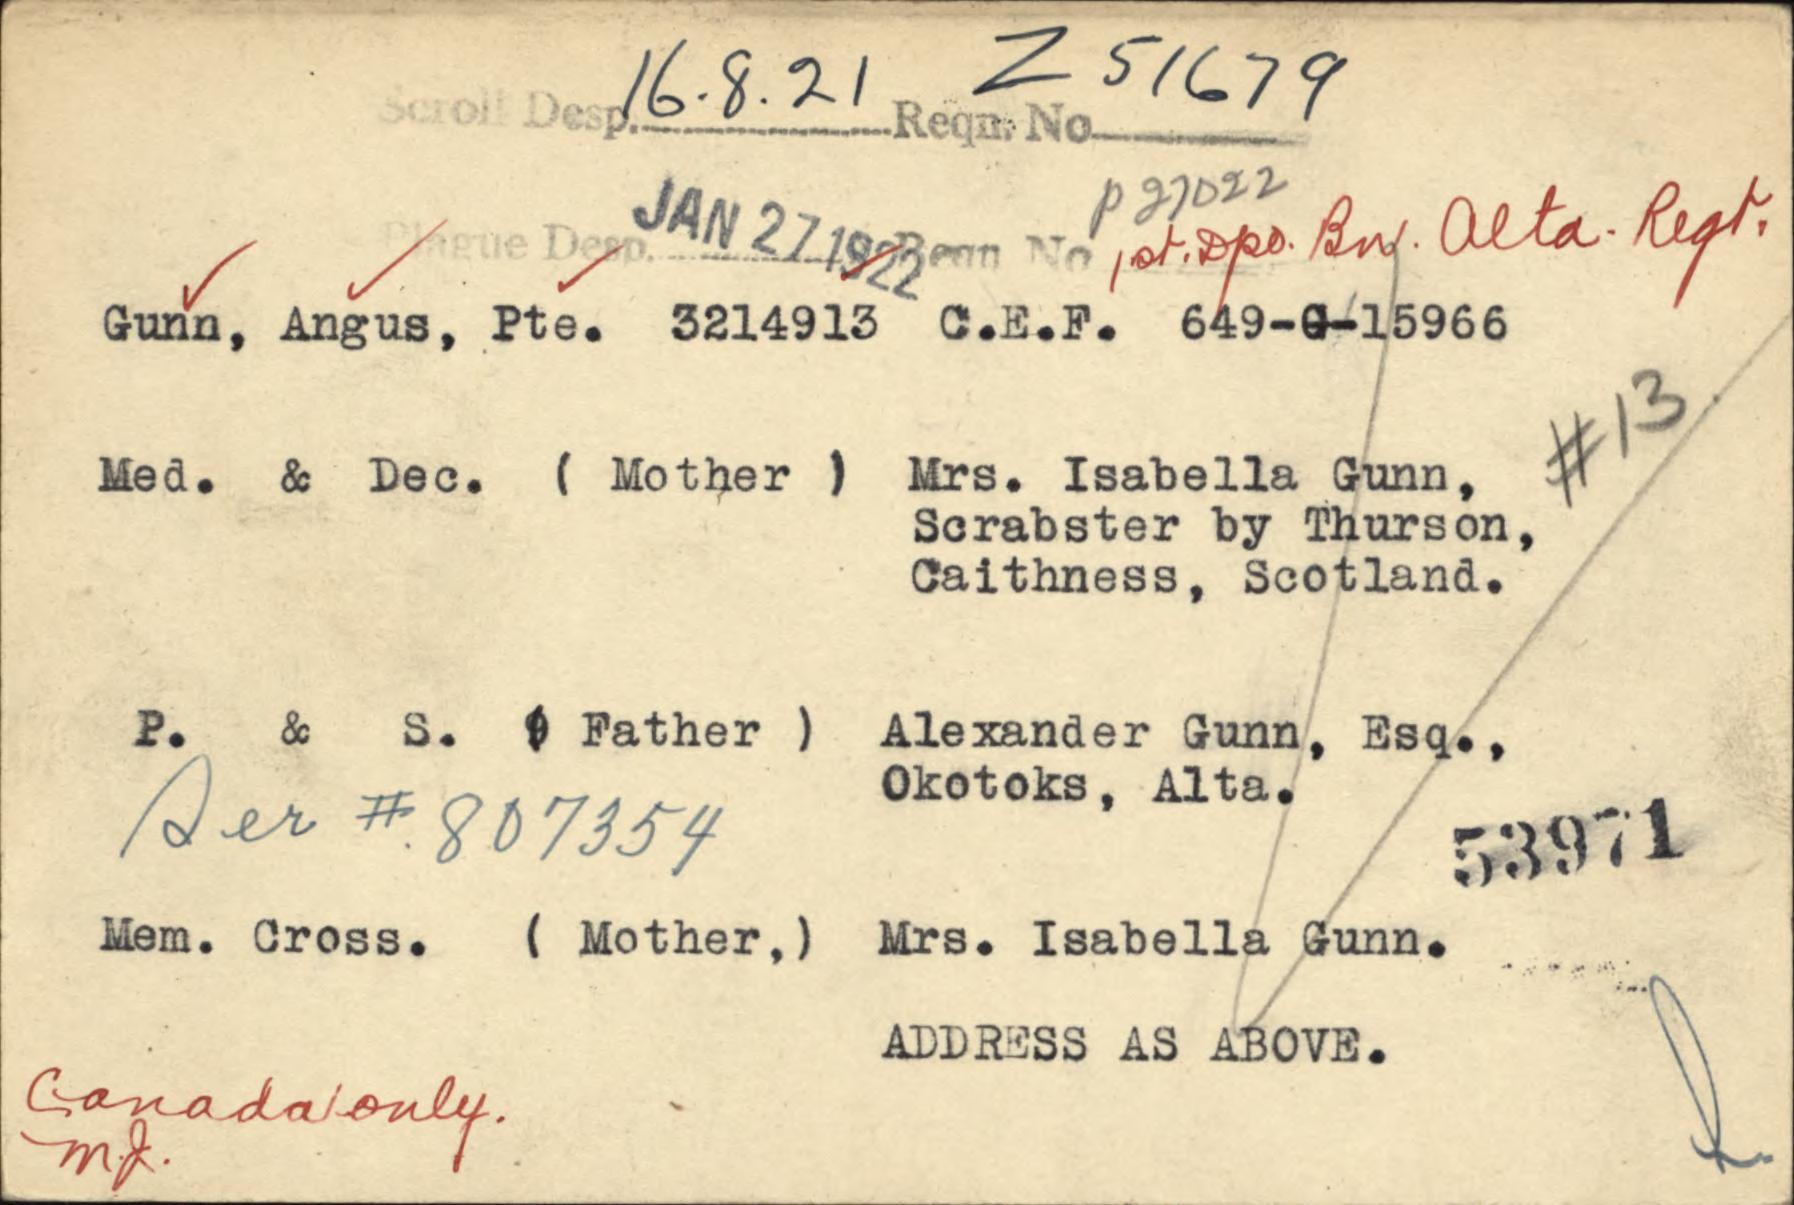 Scroll Desp. 16.8.21 Reqn. No Z 51679
Plaque Desp. JAN 27 1922 Reqn No P 27022
1st. Dpo. Bn. Alta. Regt.
Gunn, Angus, Pte. 3214913 C.E.F. 649-G-15966
#13
Med. & Dec. ( Mother ) Mrs. Isabella Gunn,
Scrabster by Thurson,
Caithness, Scotland.
P. & S. ( Father ) Alexander Gunn, Esq.,
Okotoks, Alta.
Ser #. 807354
53971
Mem. Cross. ( Mother,) Mrs. Isabella Gunn.
ADDRESS AS ABOVE.
Canada only.
M.J.